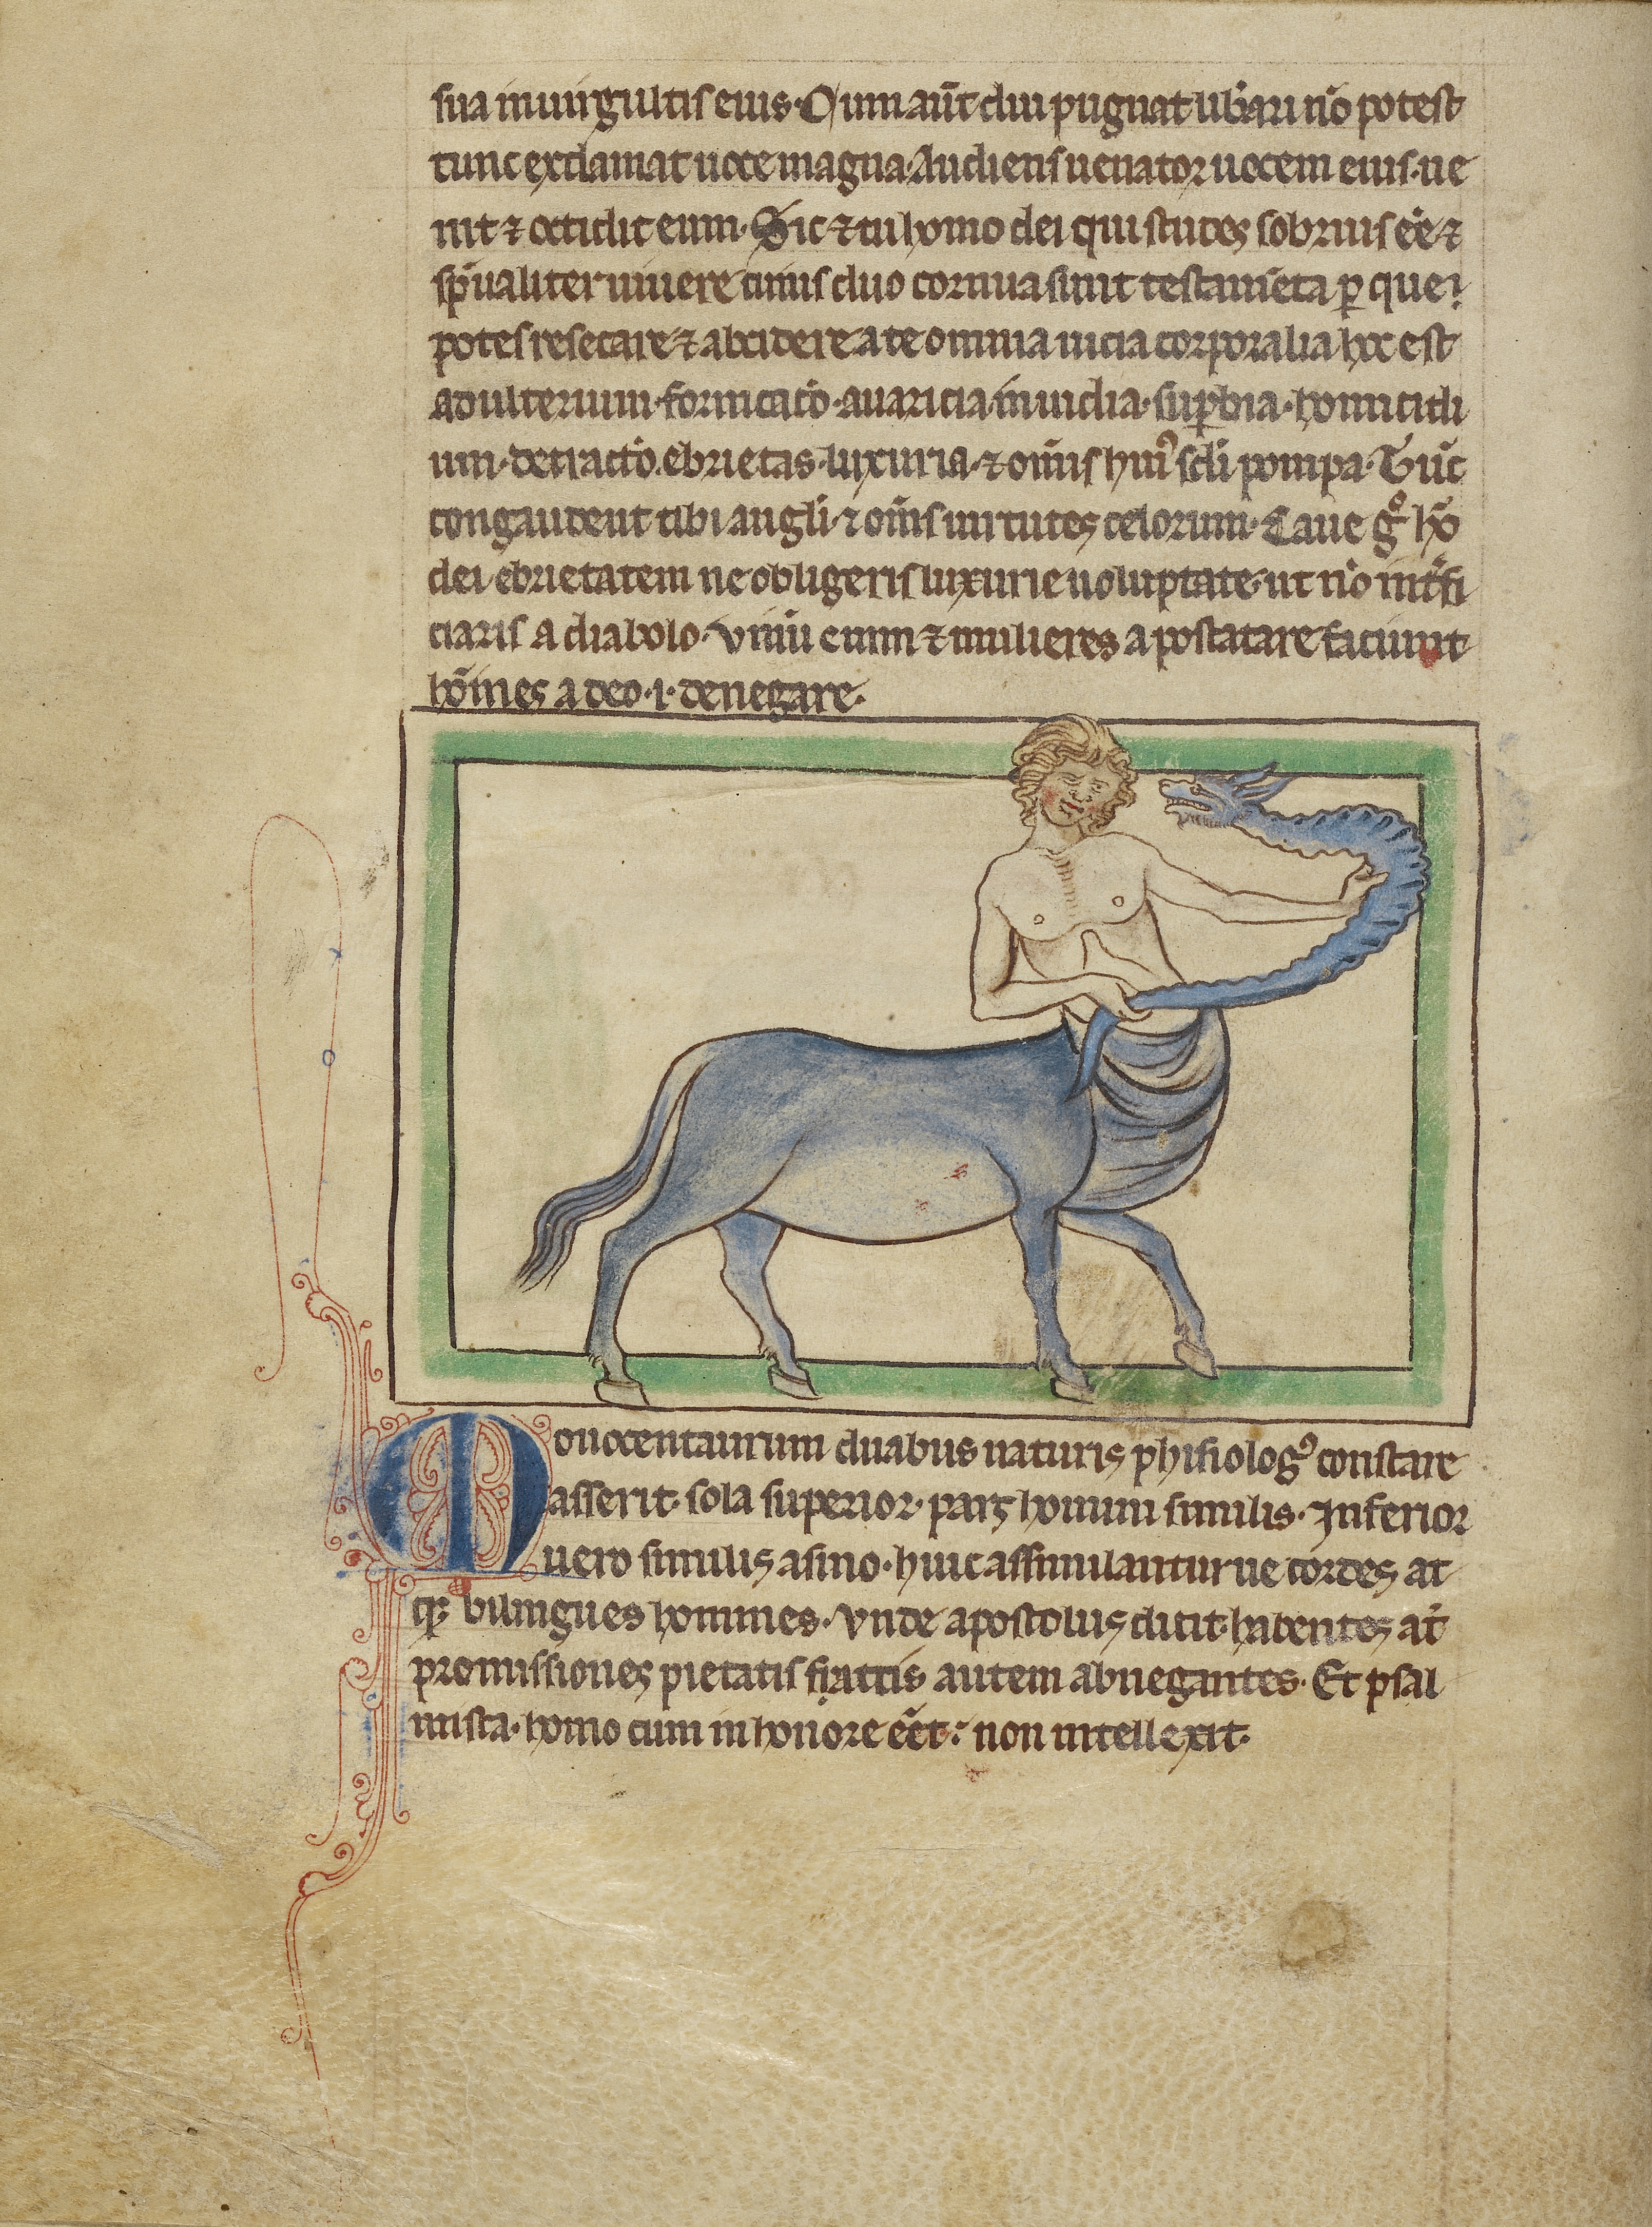 sua in uirgultis eius. Cum aūt diu pugnat̾ libari nō potest
tunc exclamat uoce magna. Audiens uenator uocem eius. ue
nit ⁊ occidit eum. Sic ⁊ tu homo dei qui studes sobrius eē ⁊
spūaliter uiuere cuius duo cornua sunt testamēta per que
potes resecare ⁊ abcidere a te omnia uicia corporalia hoc est
adulterium. fornicatō. auaricia. inuidia. suꝑbia. homicidi
um. detractō. ebrietas. luxuria. ⁊ om̄is huiꝰ scli pompa. Tūc
congaudent tibi angli. ⁊ om̄s uirtutes celorum. Caue gͦ hō
dei ebrietatem ne obligeris luxurie uoluptate. ut nō int̾fi
ciaris a diabolo. Vinū enim ⁊ mulieres apostatare faciunt
hōines a deo .i. denegare.
Monocentaurum duabus naturis phisiologꝰ constare
asserit. sola superior. pars homini similis. Inferior
uero similis asino. huic assimulantur ue cordes at
qꝫ bilingues homines. Vnde apostolus dicit. habentes aūt
promissiones pietatis. autem abnegantes. Et psal
mista. homo cum in honore eēt: non intellexit.